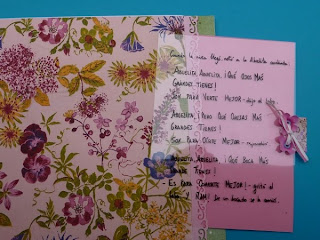 Cuando la niña llegó
ABUELITA ABUELITA, ¡QUÉ OJOS MÁS
GRANDES TIENES!
SON PARA VERTE MEJOR - dijo el lobo
ABUELITA, ¡ QUÉ OREJAS MÁS
GRANDES TIENES!
SON PARA OÍRTE MEJOR -
ABUELITA ABUELITA, ¡QUÉ BOCA MÁS
GRANDE TIENES!
- ES PARA COMERTE MEJOR! - gritó el
lobo Y ÑAM! De un bocado se la comió.